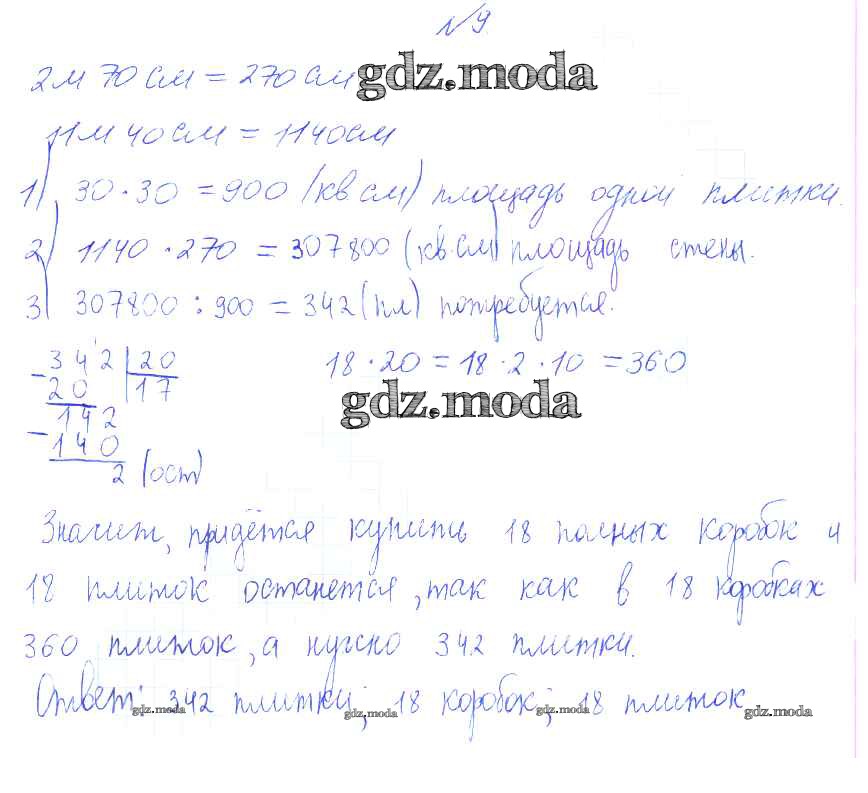 №9
2м 70 см = 270 см gdz.moda
11м 40 см = 1140 см
1) 30 · 30 = 900 (кв см) площадь одной плитки.
2) 1140 · 270 = 307800 (кв.см) площадь стены.
3) 307800 : 900 = 342 (пл) потребуется.
342 | 20 18 · 20 = 18 · 2 · 10 = 360
- 20 17
142 gdz.moda
- 140
2 (ост)
Значит, придётся купить 18 полных коробок и
18 плиток останется, так как в 18 коробках
360 плиток, а нужно 342 плитки.
Ответ: 342 плитки; 18 коробок; 18 плиток
gdz.moda gdz.moda gdz.moda gdz.moda